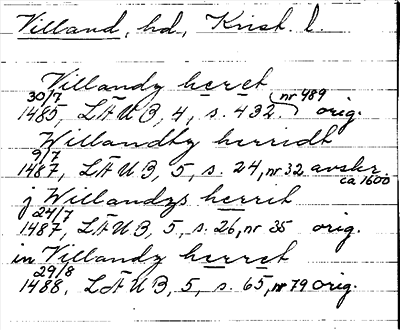 Villand, hd, Krist. l.
Villandz heret
30/7 1485, LÄUB, 4, s. 432. nr 489 orig.
Willandtz herridt
9/7 1487, LÄUB, 5, s. 24, nr 32 avskr. ca 1600
j Willandzs herrit
24/7 1487, LÄUB, 5, s. 26, nr 35 orig.
in Villandz herret
29/8 1488, LÄUB, 5, s. 65, nr 79 orig.